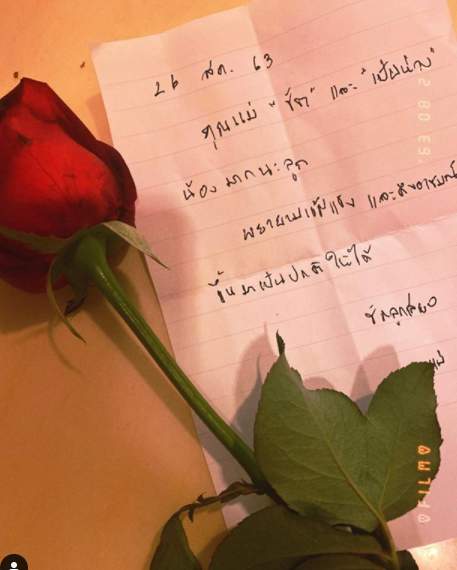 26 สค. 63
คุณแม่ "รัก" และ "เป็นห่วง"
น้อง มากนะลูก
พยายามเข้มแข็ง และดึงอารมณ์
ขึ้นมาเป็นปกติให้ได้
รักลูกเสมอ
แม่
FILM